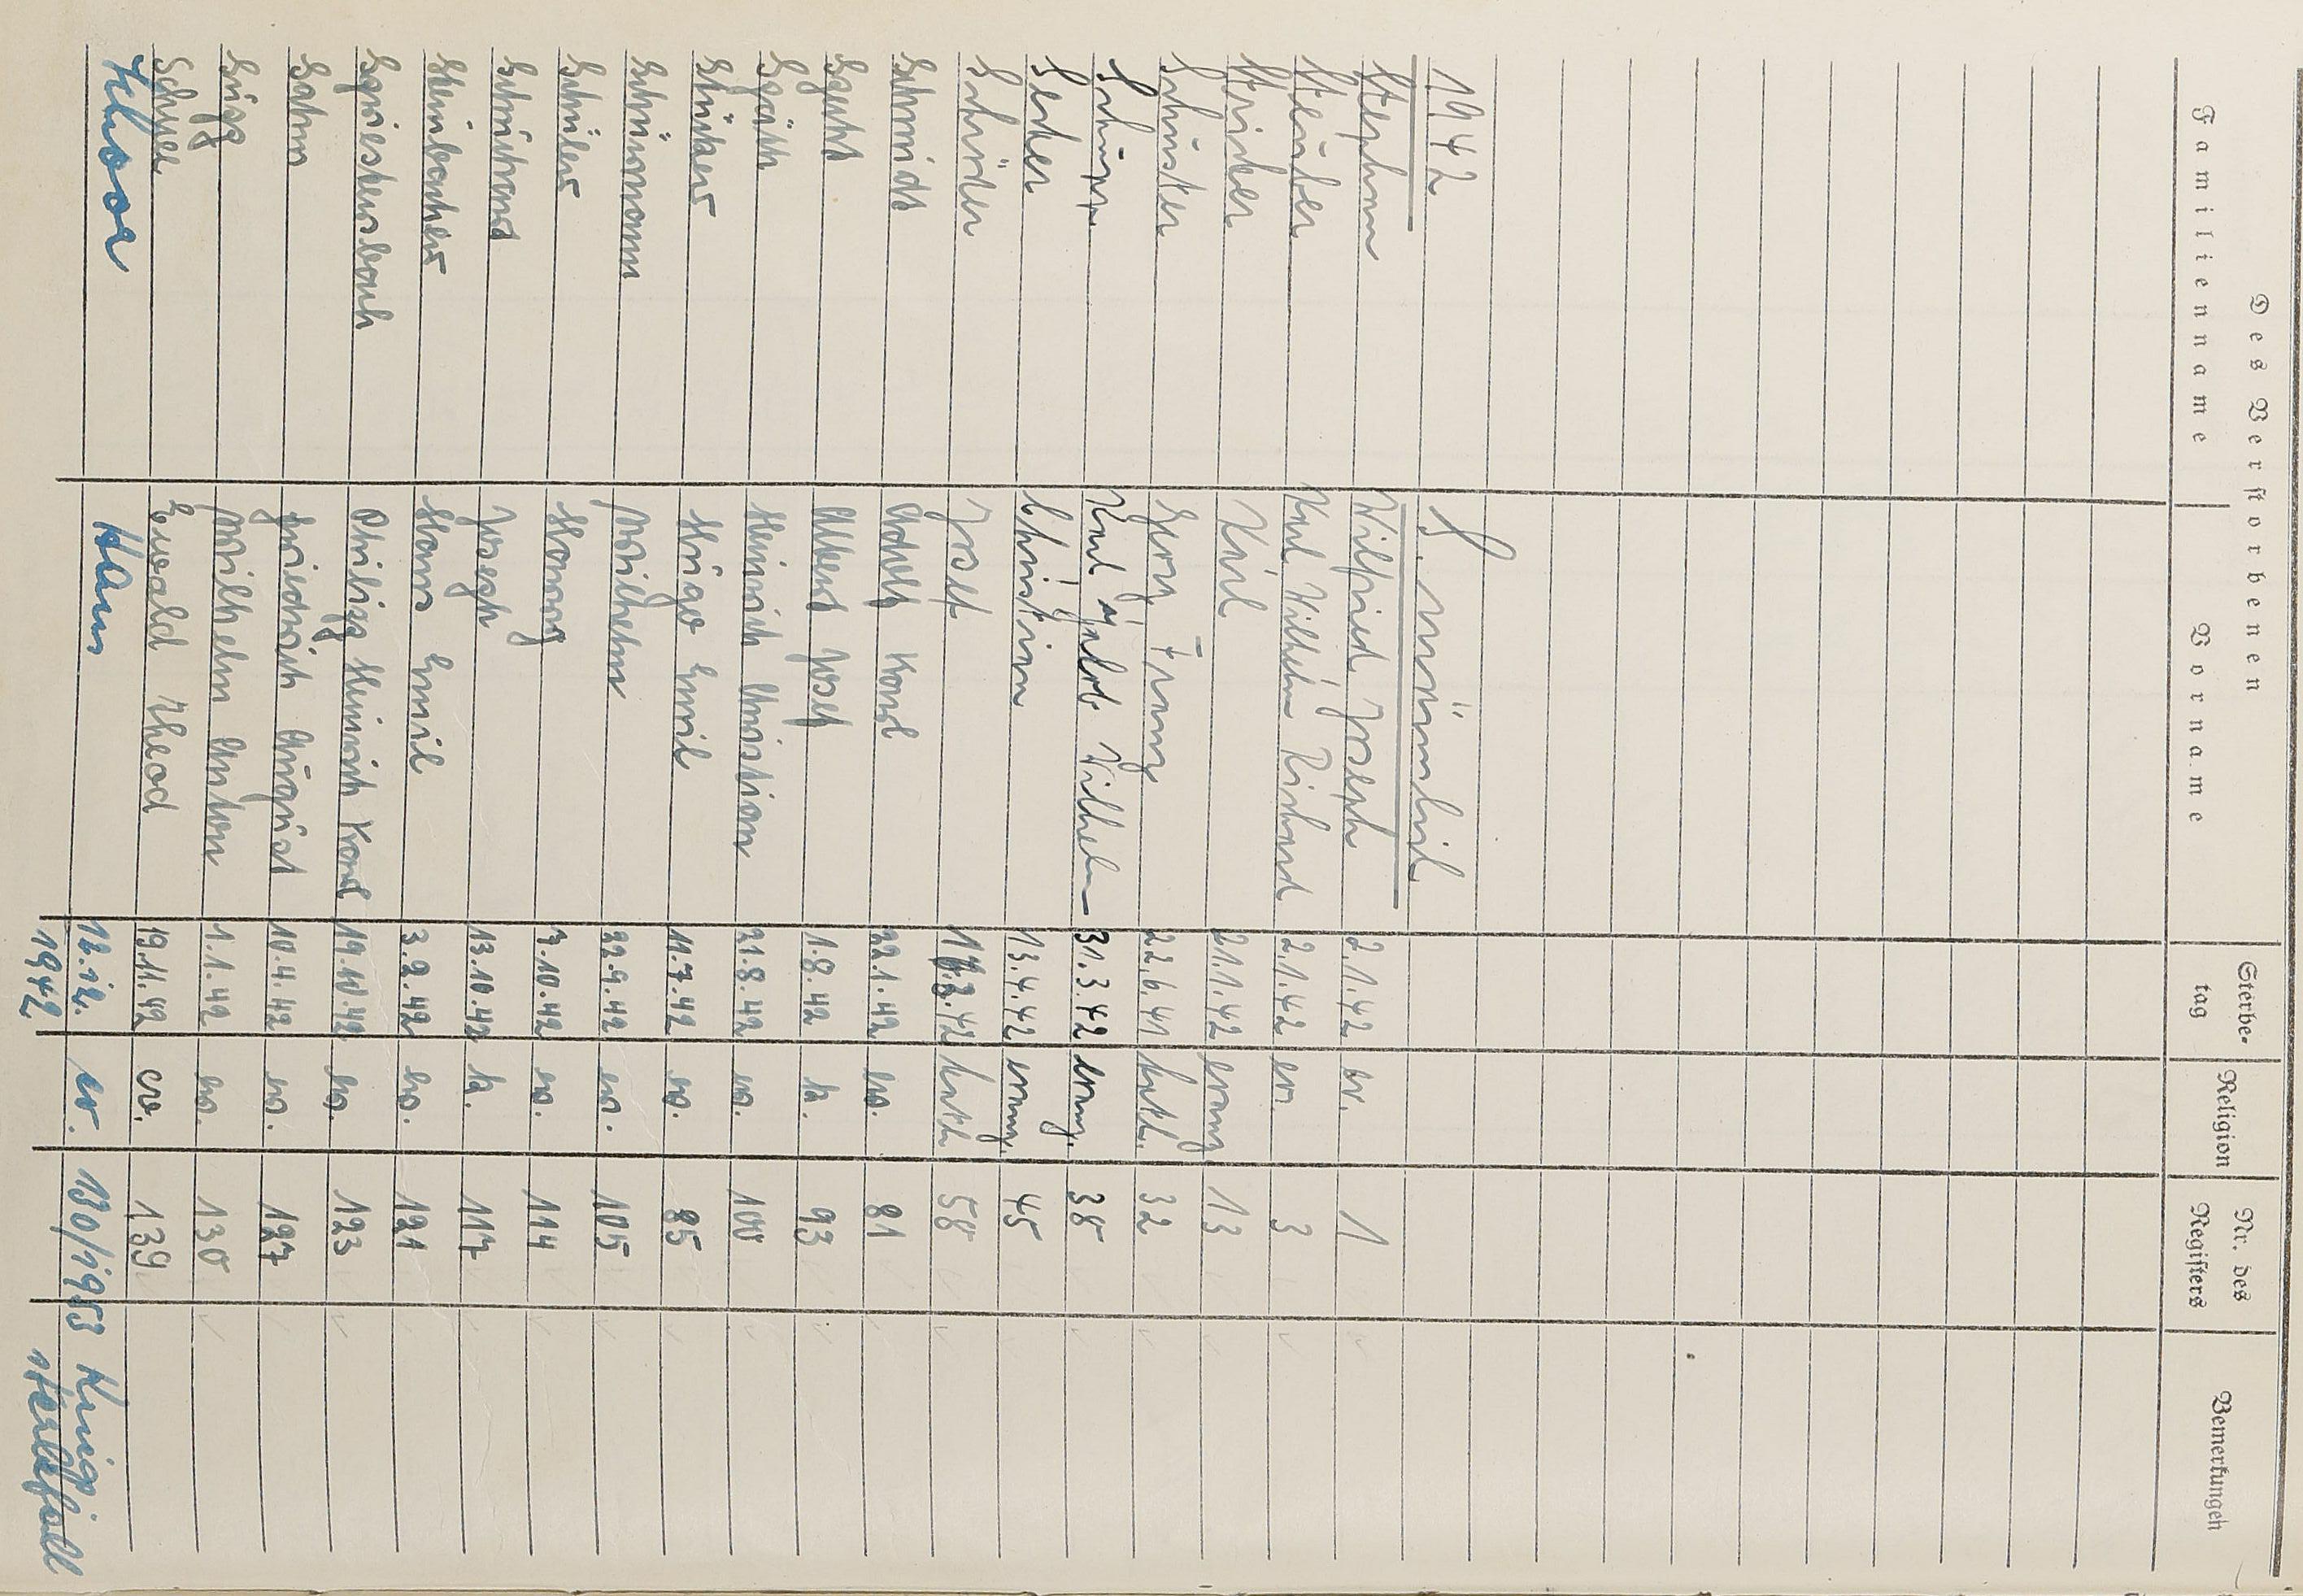 Des Verstorbenen
Familienname Vorname Sterbetag Religion Nr. des Registers Bemerkungen
1942 S. männlich
Stephan Wilfried Joseph 2.1.42 ev. 1
Steuber Karl Wilhelm Richard 2.1.42 ev. 3
Stricker Karl 21.1.42 evang 13
Schuster Georg Franz 22.6.41 kath. 32
Karl Wilhelm 31.3.42 evang. 38
Christian 13.4.42 evang. 45
Schröder Josef 42 kath. 58
Schmidt Adolf Karl 22.1.42 ev. 81
Albert Josef 1.8.42 k. 93
Späth Heinrich Christian 21.8.42 ev. 100
Stücker Hugo Emil 11.7.42 ev. 85
Schürmann Wilhelm 22.9.42 ev. 105
Schüler 7.10.42 ev. 114
Joseph 13.10.42 k. 117
Steinbacher Hans Emil 3.9.42 ev. 121
Spriestersbach Philipp Heinrich Karl 19.10.42 ev. 123
Sahm Friedrich August 10.4.42 ev. 127
Supp Wilhelm Anton 1.1.42 ev. 130
Schnell Ewald Theod 19.11.42 ev. 139
Hans 12.12. 1942 ev. 130/1953 Kriegssterbefall